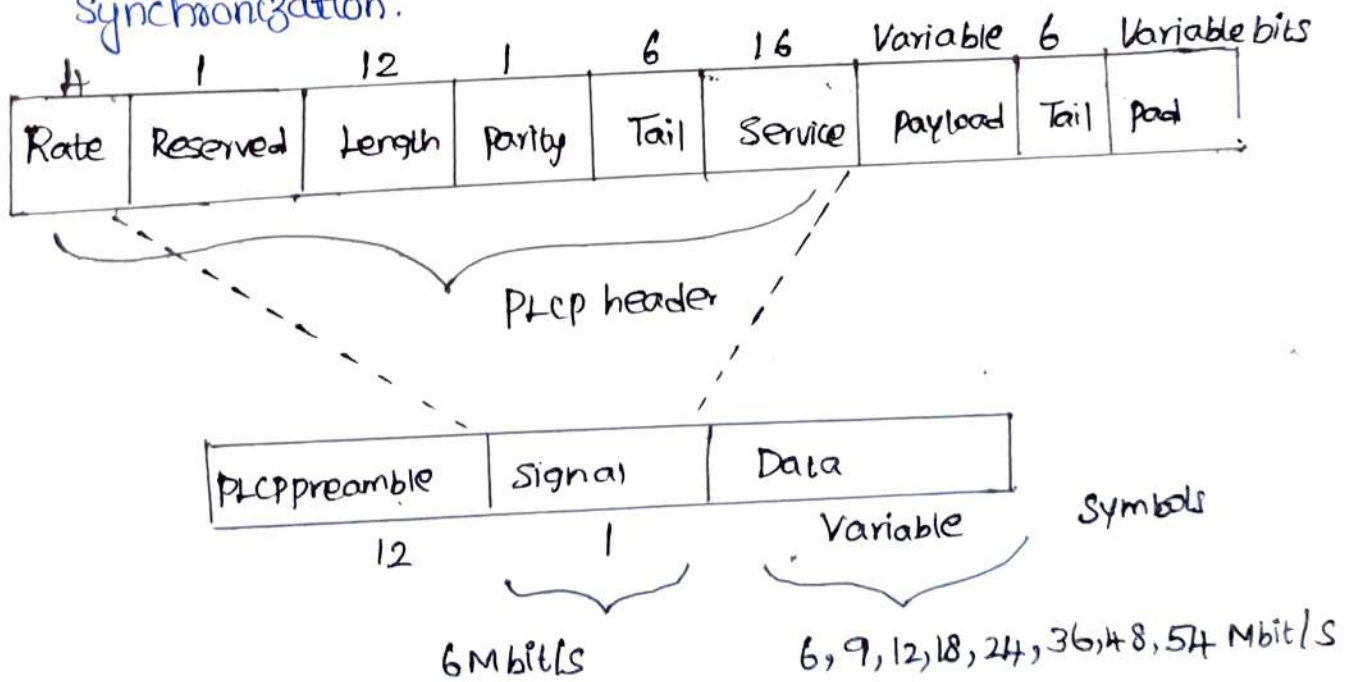 Synchronization.
4 1 12 1 6 16 Variable 6 Variable bits
Rate Reserved Length Parity Tail Service Payload Tail Pad
PLCP header
PLCP preamble Signal Data
12 1 Variable Symbols
6 Mbit/s 6, 9, 12, 18, 24, 36, 48, 54 Mbit/s